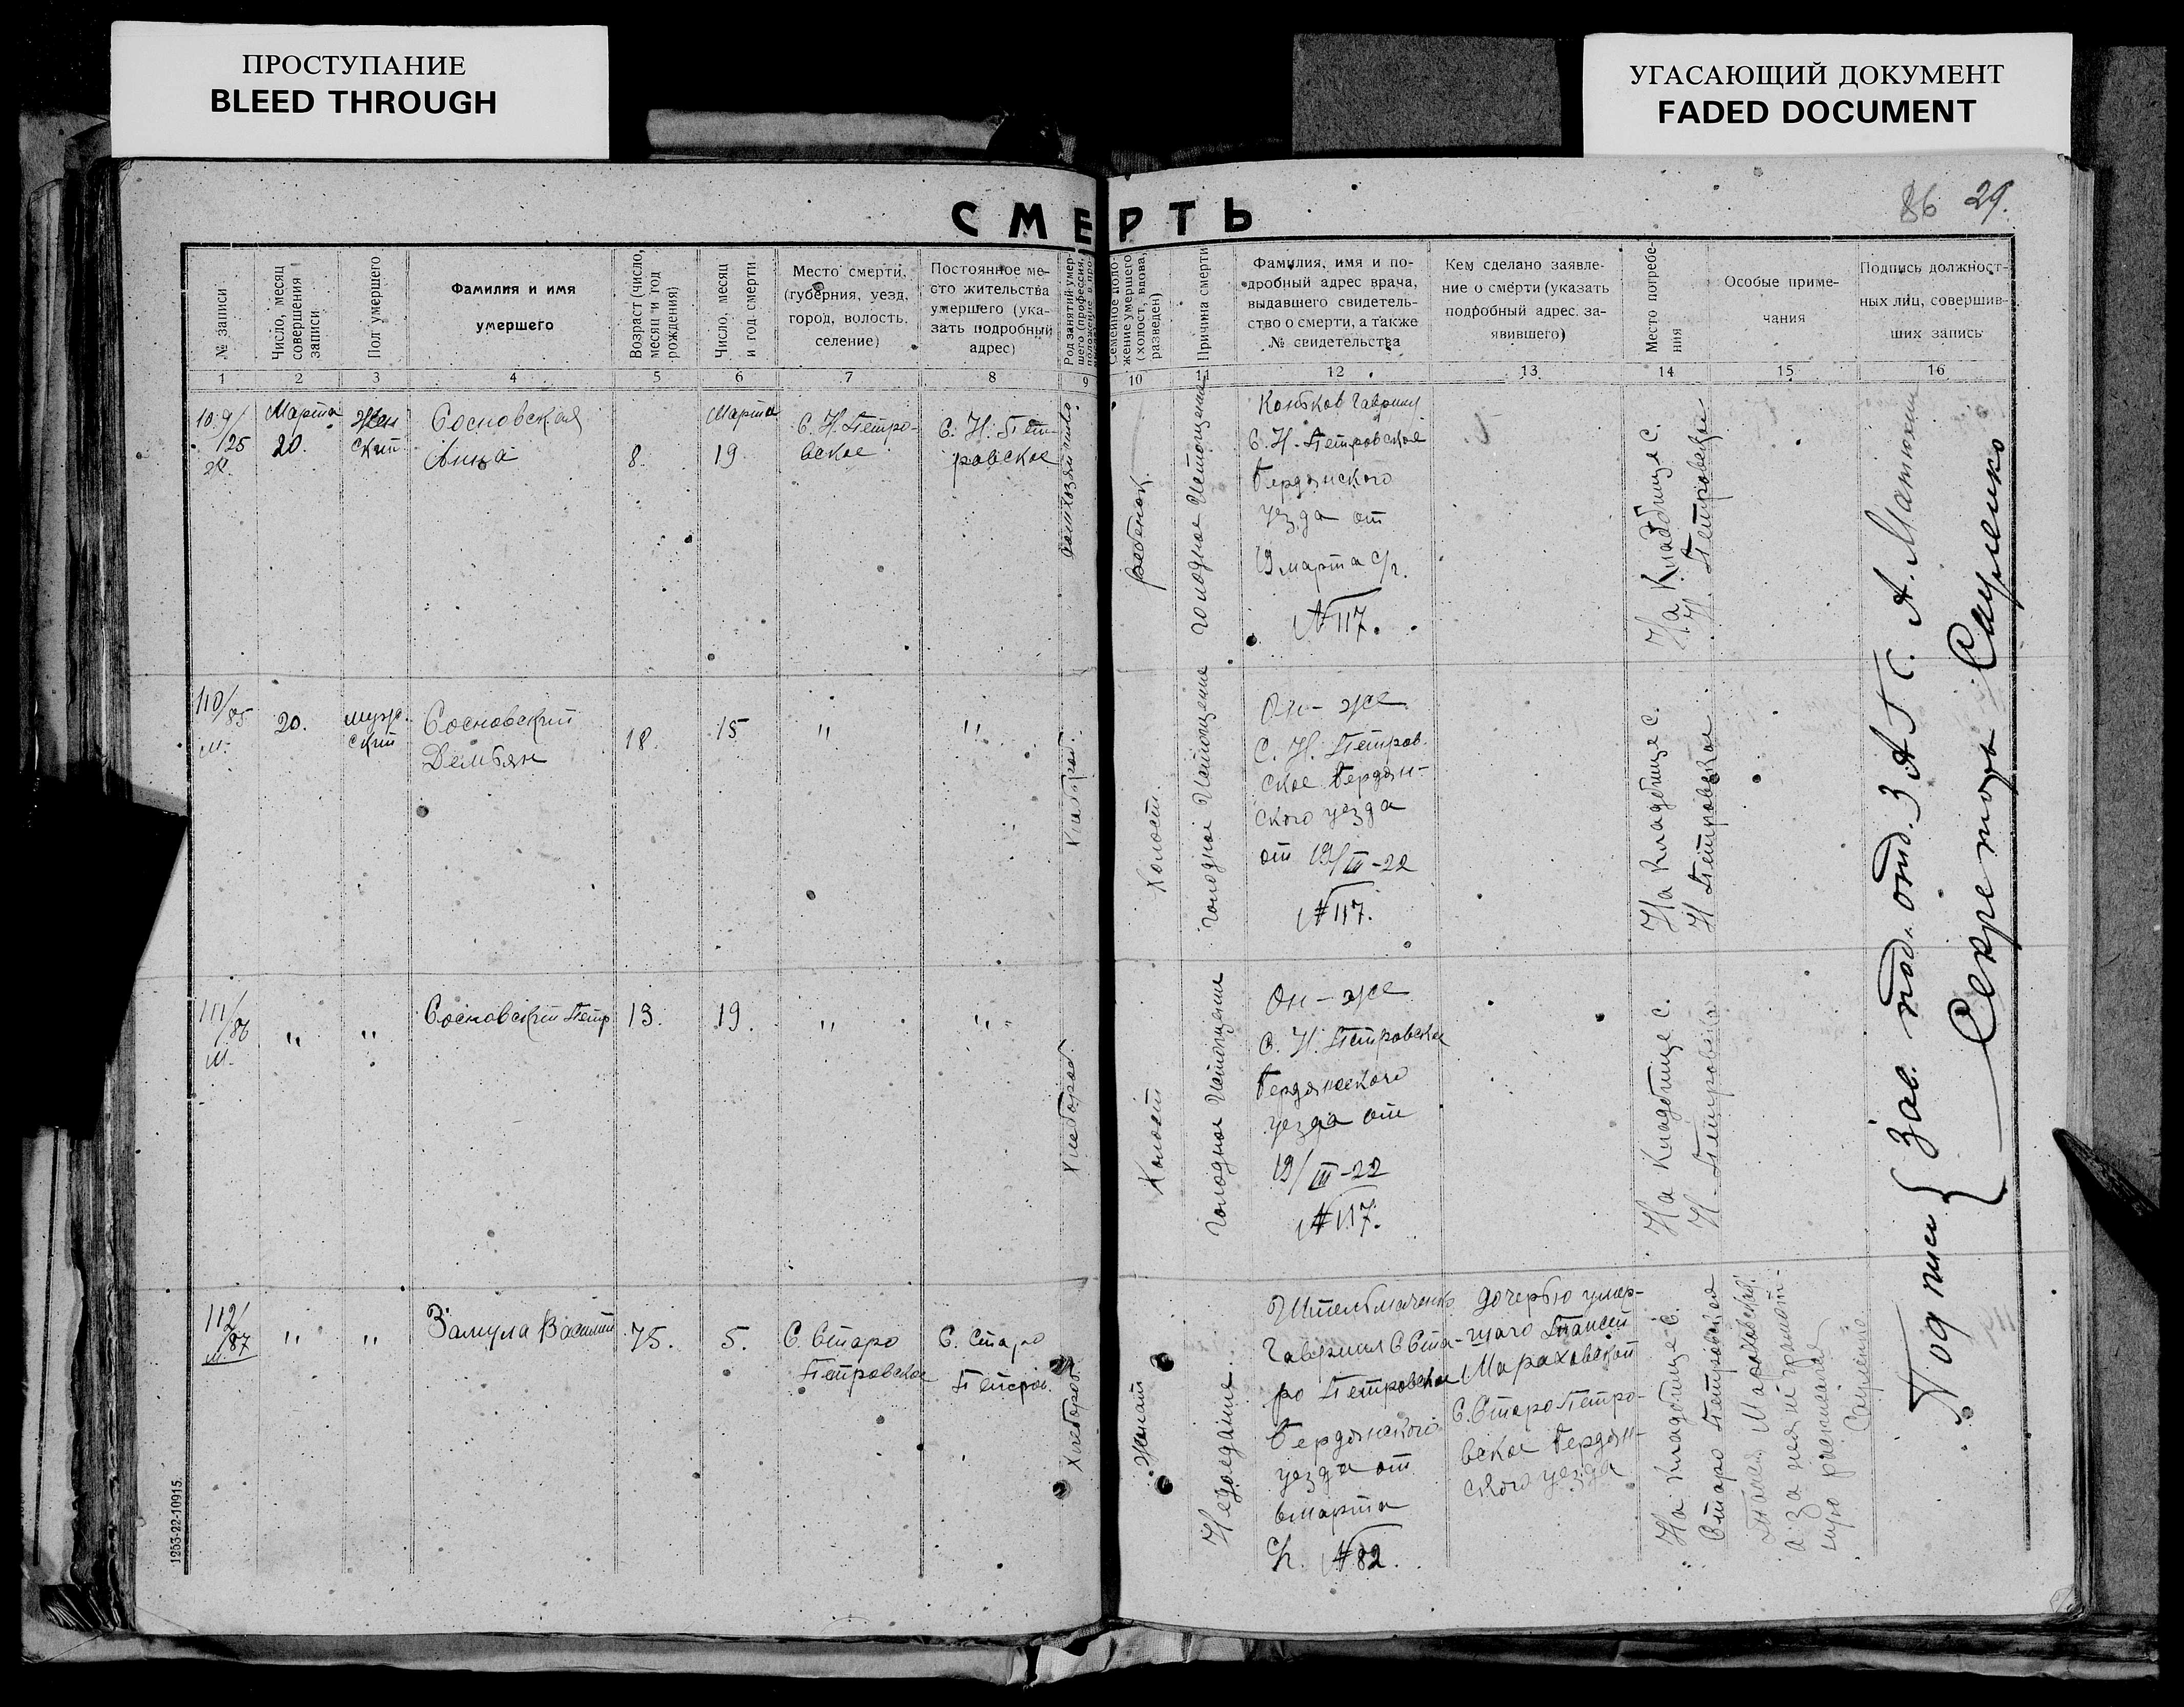 ПРОСТУПАНИЕ
BLEED THROUGH
УГАСАЮЩИЙ ДОКУМЕНТ
FADED DOCUMENT
86 29.
СМЕРТЬ
№ записи
Число, месяц
совершения
записи
Пол умершего
Фамилия и имя
умершего
Возраст (число,
месяц и год
рождения)
Число, месяц
и год смерти
Место смерти,
(губерния, уезд,
город, волость,
селение)
Постоянное ме-
сто жительства
умершего (ука-
зать подробный
адрес)
Род занятий умер-
шего (профессия,
положение в про-
Семейное поло-
жение умершего
(холост, вдова,
разведен)
Причина смерти
Фамилия, имя и по-
дробный адрес врача,
выдавшего свидетель-
ство о смерти, а также
№ свидетельства
Кем сделано заявле-
ние о смерти (указать
подробный адрес за-
явившего)
Место погребе-
ния
Особые приме-
чания
Подпись должност-
ных лиц, совершив-
ших запись
1 2 3 4 5 6 7 8 9 10 11 12 13 14 15 16
109/
125
ж.
Марта
20.
Жен
ский
Сосновская
Анна
8.
Марта
19
С. Н. Петро-
вское
С. Н. Пет-
ровское
ребенок
голодное истощение
Коньков Гавриил
С. Н. Петровское
Бердянского
уезда от
19 марта с/г.
№ 117.
На Кладбище с.
Н. Петровское
110/
85
м.
20.
мужс.
ский
Сосновский
Демьян
18.
15
"
"
Хлебороб.
Холост.
голодное истощение
Он-же
С. Н. Петров.
ское Бердян-
ского уезда
от 19/III-22
№ 117.
На кладбище с.
Н Петровское
111/
86
м.
"
"
Сосновский Петр
13.
19.
"
"
Хлебороб
Холост
голодное истощение
Он-же
С. Н. Петровское
Бердянского
уезда от
19/III-22
№ 117.
На Кладбище с.
Н. Петровское
112/
87
м.
"
"
Замула Василий
75.
5.
С. Старо
Петровское
С. Старо
Петров.
Хлебороб.
Женат
Недоедание.
Штельмаченко
Гавриил С Ста-
ро Петровское
Бердянского
уезда от
6 марта
с/г. № 82.
дочерью умер-
шаго Таисий
Мараховской
С. Старо Петро-
вское Бердян-
ского уезда
На кладбище с.
Старо Петровское
Таисия Мараховская
а за неё неграмот-
ную расписался
Сауленко
Подписи { Зав. под. отд. ЗАГС. А. Матюхин
Секретарь Сауленко
1253-22-10915.